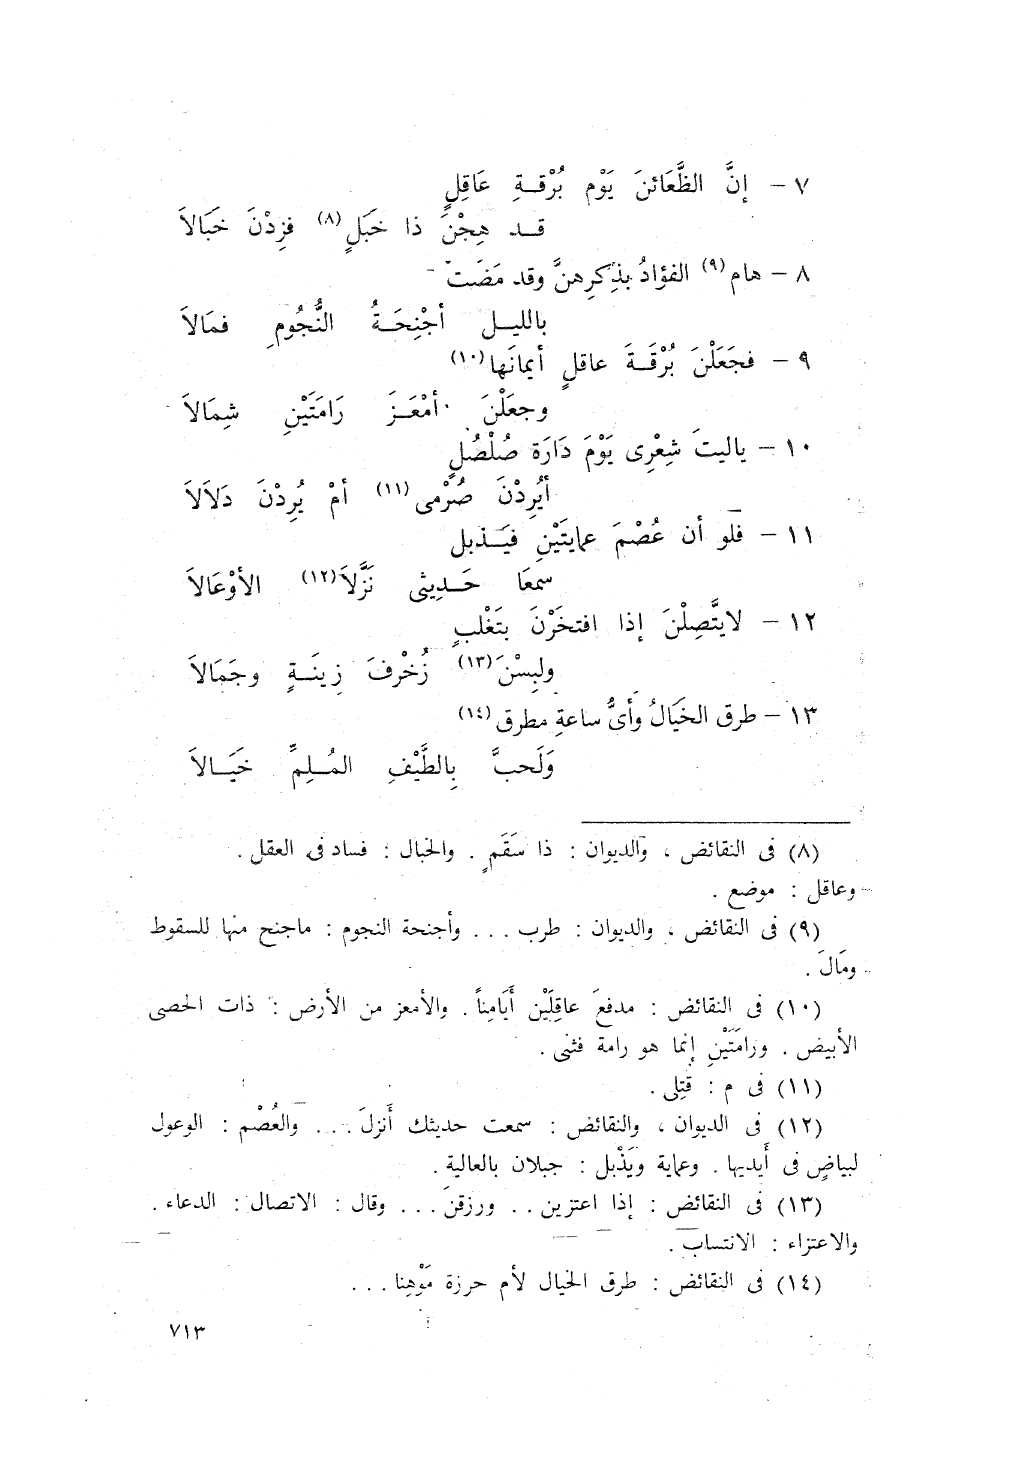 ٧ – إنَّ الظَّعَائنَ يَوْم بُرْقـةِ عَاقِلٍ
قـد هِجْنَ ذا خَبَلٍ(٨) فزِدْنَ خَبَالاَ
٨ – هام(٩) الفؤادُ بذِكرِهنَّ وقد مَضَت
بالليـل أجْنِحَـةُ النُّجُومِ فمَالاَ
٩ – فجَعَلْنَ بُرْقَـةَ عاقلٍ أيمانَها(١٠)
وجعَلْنَ أمْعَـزَ رَامَتَيْنِ شِمَالاَ
١٠ – ياليتَ شِعْرِى يَوْمَ دَارَة صُلْصُلٍ
أيُرِدْنَ صُرْمى(١١) أمْ يُرِدْنَ دَلاَلاَ
١١ – فلو أن عُصْمَ عمايتَيْنِ فيَـذبل
سمعَا حَـدِيثى نَزَّلاَ(١٢) الأوْعَالاَ
١٢ – لايتَّصِلْنَ إذا افتخَرْنَ بتَغْلبٍ
ولبِسْنَ(١٣) زُخْرفَ زِينَـةٍ وجَمَالاَ
١٣ – طرق الخَيَالُ وأىُّ ساعةِ مطرق(١٤)
وَلَحبَّ بِالطَّيْفِ المُـلِمِّ خَيَـالاَ
(٨) فى النقائض ، والديوان : ذا سَقَمٍ . والخبال : فساد فى العقل .
وعاقل : موضع .
(٩) فى النقائض ، والديوان : طرب ... وأجنحة النجوم : ماجنح منها للسقوط
ومَالَ .
(١٠) فى النقائض : مدفعَ عاقِلَيْن أَيَامِناً . والأمعز من الأرض : ذات الحصى
الأبيض . ورامَتَيْنِ إنما هو رامة فثنى .
(١١) فى م : قَتِلى .
(١٢) فى الديوان ، والنقائض : سمعت حديثك أَنزلَ ... والعُصْم : الوعول
لبياضٍ فى أَيديها . وعماية ويَذْبل : جبلان بالعالية .
(١٣) فى النقائض : إذا اعتزين .. ورزقن ... وقال : الاتصال : الدعاء .
والاعتزاء : الانتساب .
(١٤) فى النقائض : طرق الخيال لأم حرزة مَوْهِنا ...
٧١٣